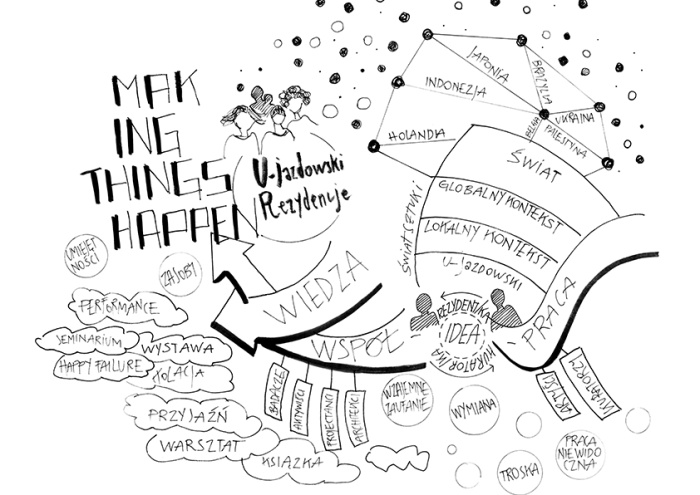 MAK
ING
THINGS
HAPPEN
U-jazdowski
Rezydencje
JAPONIA
BRAZYLIA
INDONEZJA
UKRAINA
BELGIA
PALESTYNA
HOLANDIA
ŚWIAT
GLOBALNY KONTEKST
LOKALNY KONTEKST
U-JAZDOWSKI
ŚWIAT SZTUKI
UMIEJĘT
NOŚCI
ZASOBY
WIEDZA
PRACA
REZYDENT/KA
IDEA
KURATOR/KA
WSPÓŁ
PERFORMANCE
SEMINARIUM
WYSTAWA
HAPPY FAILURE
KOLACJA
PRZYJAŹŃ
WARSZTAT
KSIĄŻKA
BADACZE
AKTYWIŚCI
PROJEKTANCI
ARCHITEKCI
WZAJEMNE
ZAUFANIE
WYMIANA
ARTYŚCI
KURATORZY
TROSKA
PRACA
NIEWIDO
CZNA